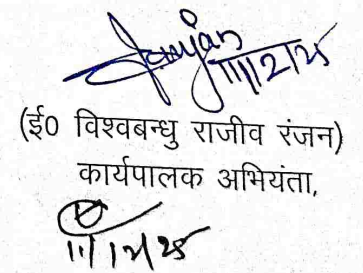 Ranjan
11/12/25
(ई0 विश्वबन्धु राजीव रंजन)
कार्यपालक अभियंता,
11/12/25